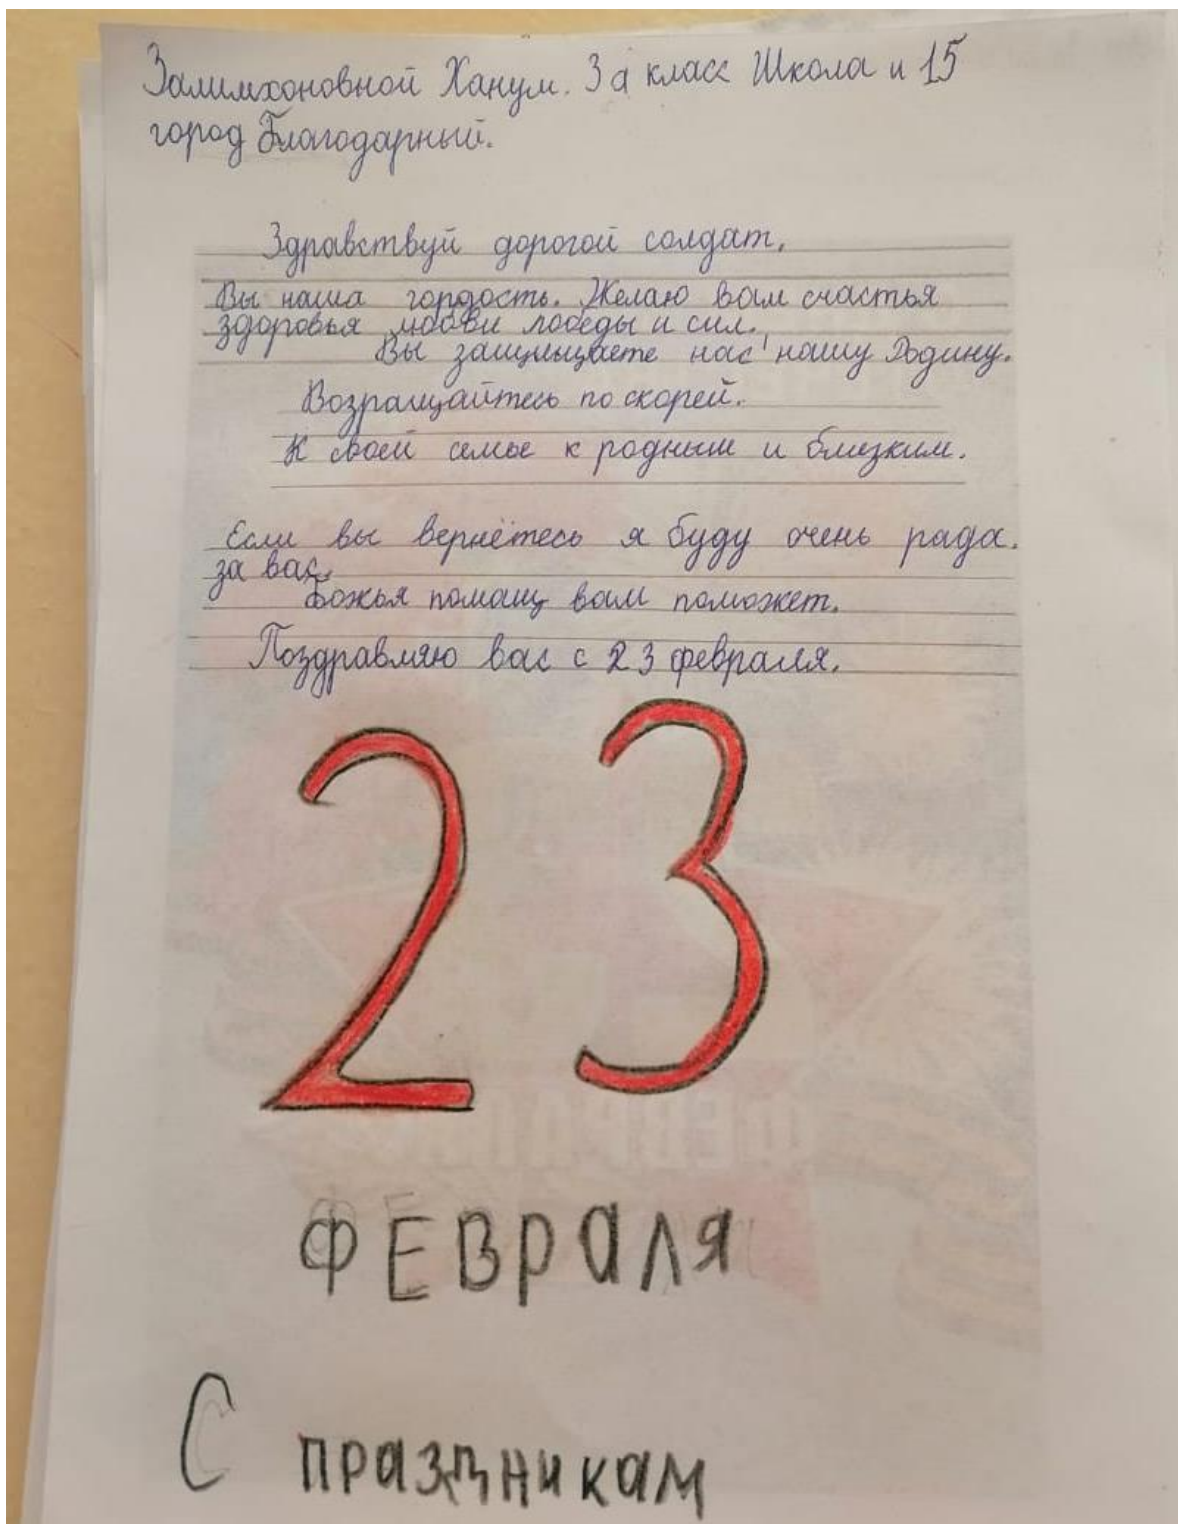 Залимхоновной Ханум. 3а класс Школа н 15
город Благодарный.
Здравствуй дорогой солдат.
Вы наша гордость. Желаю вам счастья
здоровья любви победы и сил.
Вы защищаете нас нашу Родину.
Возращайтесь по скорей.
К своей семье к родным и близким.
Если вы вернётесь я буду очень рада.
за вас.
Божья помащ вам поможет.
Поздравляю вас с 23 февраля.
23
ФЕВРАЛЯ
С праздникам